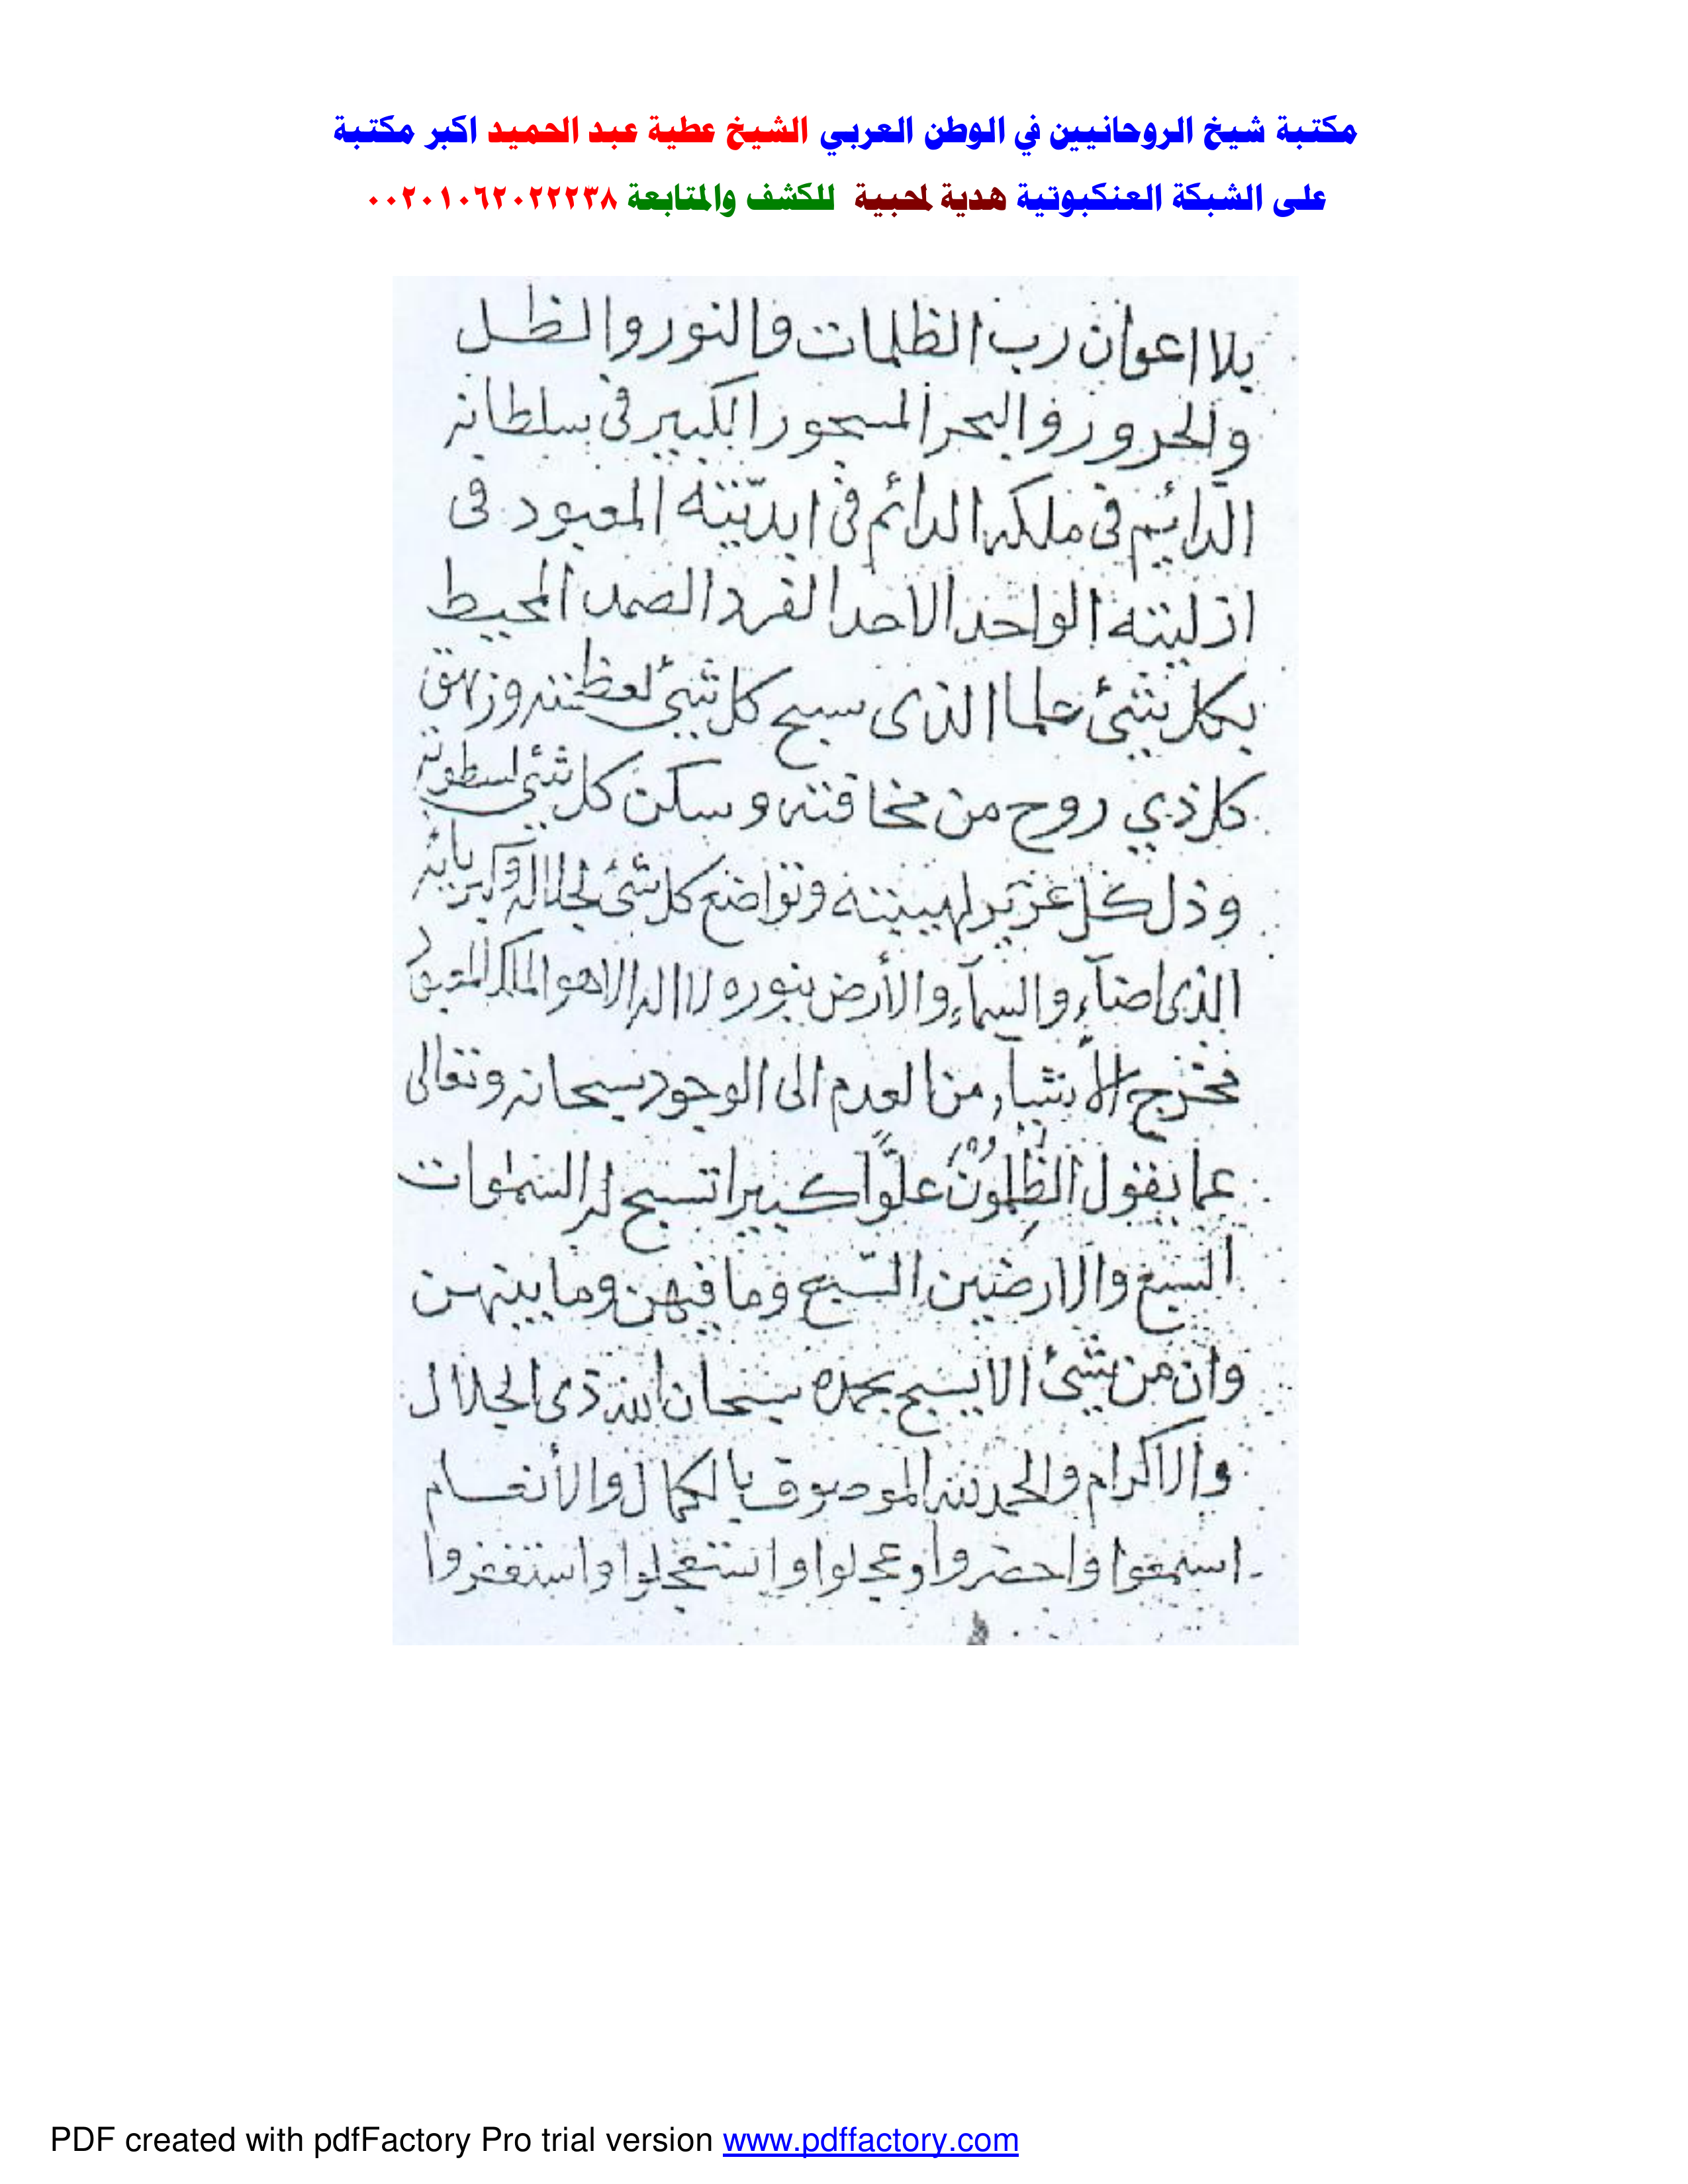 مكتبة شيخ الروحانيين في الوطن العربي الشيخ عطية عبد الحميد اكبر مكتبة
على الشبكة العنكبوتية هدية لمحبية للكشف والمتابعة ٠٠٢٠١٠٦٢٠٢٢٢٣٨
يلا اعوان رب الظلمات والنور والظل
والحرور والبحر المسجور الكبير فى سلطانه
الدائيم فى ملكه الدائم فى ابديّته المعبود فى
ازليته الواحد الاحد الفرد الصمد المحيط
بكل شئ علما الذى سبح كل شئ لعظمته وزهق
كل ذي روح من مخافته وسكن كل شئ لسطوته
وذل كل عزيز لهيبته وتواضع كل شئ لجلاله وكبريائه
الذى اضآء والسمآء والأرض بنوره لا اله الا هو الملك المعبود
مخرج الأشيآء من العدم الى الوجود سبحانه وتعالى
عما يقول الظلمون علوًّا كبيرا تسبح له السموات
السبع والارضين السّبع وما فيهن وما بينهن
وان من شئ الا يسبح بحمده سبحان الله ذى الجلال
والاكرام والحمد لله الموصوف بالكمال والأنعام
اسمعوا واحضروا وعجلوا واستعجلوا واستغفروا
PDF created with pdfFactory Pro trial version www.pdffactory.com